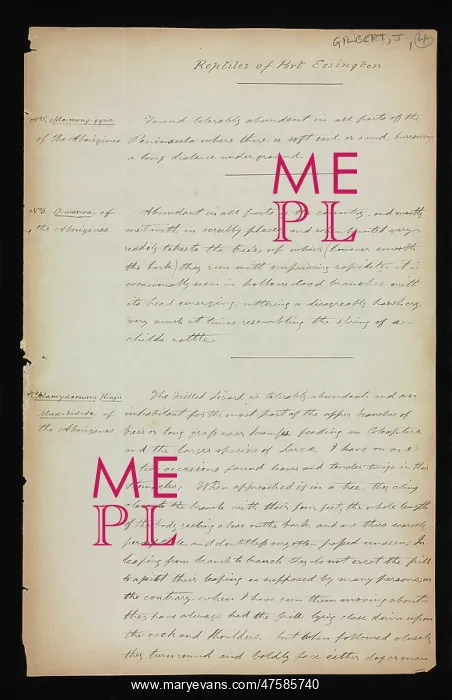 GILBERT, J. 4
Reptiles of Port Essington
of the Aborigines
Found tolerably abundant in all parts of the
Peninsula where there is soft soil or sand, burrowing
a long distance under ground.
No 6. of
the Aborigines
Abundant in all parts of the country, and mostly
met with in scrubby places and when hunted very
readily takes to the trees, up which (however smooth
the bark) they run with surprising rapidity. it is
occasionally seen in hollow dead branches with
its head emerging, uttering a disagreeably harsh cry,
very much at times resembling the spring of a
childs rattle.
Clamydosaurus Kingii
of
the Aborigines
The Frilled lizard is tolerably abundant and an
inhabitant for the most part of the upper branches of
trees or long grass near swamps, feeding on Coleoptera
and the larger species of Larva. I have on one
or two occasions found leaves and tender twigs in their
stomachs. When approached if in a tree they cling
close to the branch with their four feet, the whole length
of the body resting close on the bark and are thus scarcely
perceptible and doubtless very often passed unseen. In
leaping from branch to branch they do not erect the frill
to assist their leaping as supposed by many persons, on
the contrary, when I have seen them moving about
they have always had the frill lying close down upon
the neck and shoulders. but when followed closely
they turn round and boldly face either dog or man
ME
PL
ME
PL
www.maryevans.com 47585740